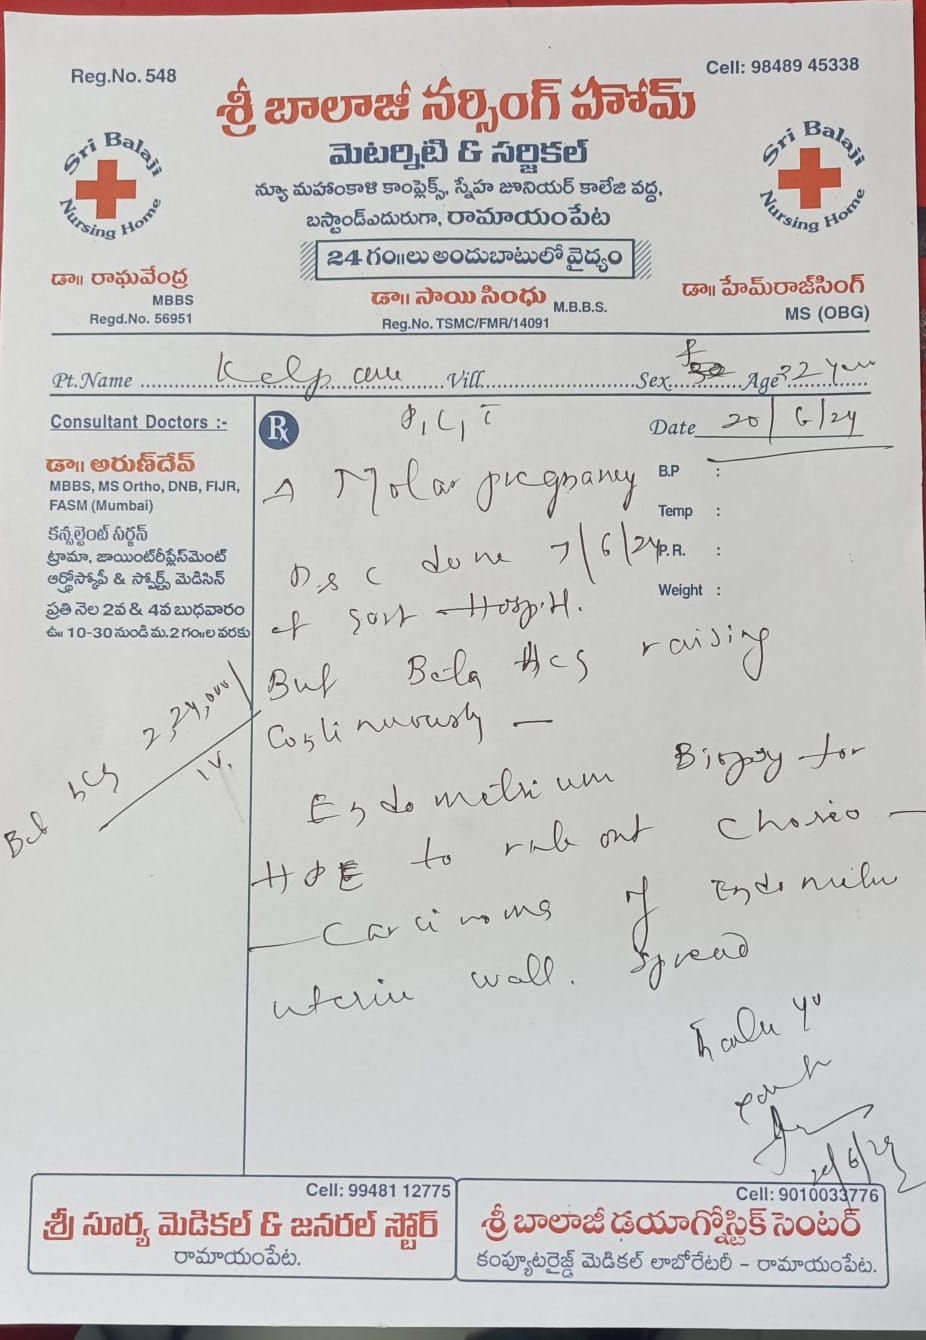 Reg.No. 548
Cell: 98489 45338
శ్రీ బాలాజీ నర్సింగ్ హోమ్
Sri Balaji Nursing Home
Sri Balaji Nursing Home
మెటర్నిటి & సర్జికల్
న్యూ మహంకాళి కాంప్లెక్స్, స్నేహ జూనియర్ కాలేజి వద్ద,
బస్టాండ్ఎదురుగా, రామాయంపేట
24 గం॥లు అందుబాటులో వైద్యం
డా॥ రాఘవేంద్ర
MBBS
Regd.No. 56951
డా॥ సాయి సింధు M.B.B.S.
Reg.No. TSMC/FMR/14091
డా॥ హేమ్‌రాజ్‌సింగ్
MS (OBG)
Pt.Name Vill. Sex Age 32
Consultant Doctors :-
డా॥ అరుణ్‌దేవ్
MBBS, MS Ortho, DNB, FIJR,
FASM (Mumbai)
కన్సల్టెంట్ సర్జన్
ట్రామా, జాయింట్‌రీప్లేస్‌మెంట్
ఆర్థ్రోస్కోపీ & స్పోర్ట్స్ మెడిసిన్
ప్రతి నెల 2వ & 4వ బుధవారం
ఉ॥ 10-30 నుండి మ.2 గం॥ల వరకు
Rx
Date 20/6/24
B.P :
Temp :
P.R. :
Weight :
Molar pregnancy
D&C done 7/6/24
at Hospital.
But Beta HCG raising
Continuously —
Endometrium Biopsy for
HPE to rule out Chorio —
— Carcinoma of
uterine wall. Spread
Thank you
20/6/24
2,24,000
Cell: 99481 12775
శ్రీ సూర్య మెడికల్ & జనరల్ స్టోర్
రామాయంపేట.
Cell: 9010033776
శ్రీ బాలాజీ డయాగ్నోస్టిక్ సెంటర్
కంప్యూటరైజ్డ్ మెడికల్ లాబోరేటరీ – రామాయంపేట.